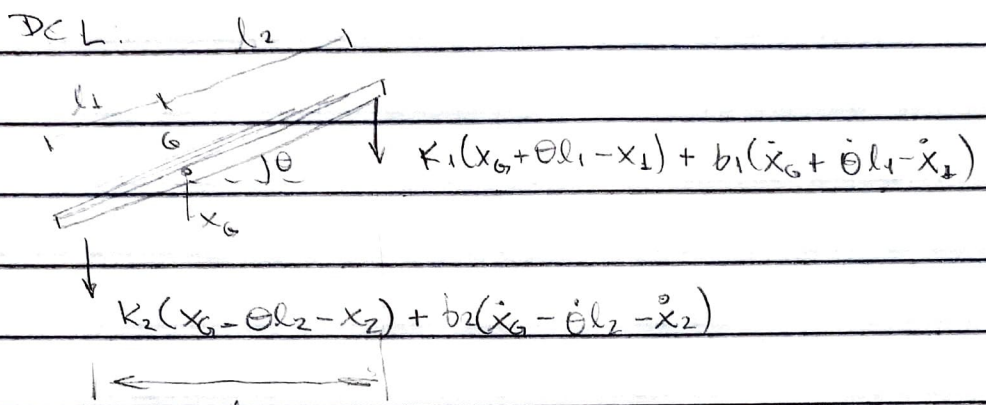 DCL. l2
l1
G
θ
K1(xG+θl1-x1) + b1(ẋG+θ̇l1-ẋ1)
xG
K2(xG-θl2-x2) + b2(ẋG-θ̇l2-ẋ2)